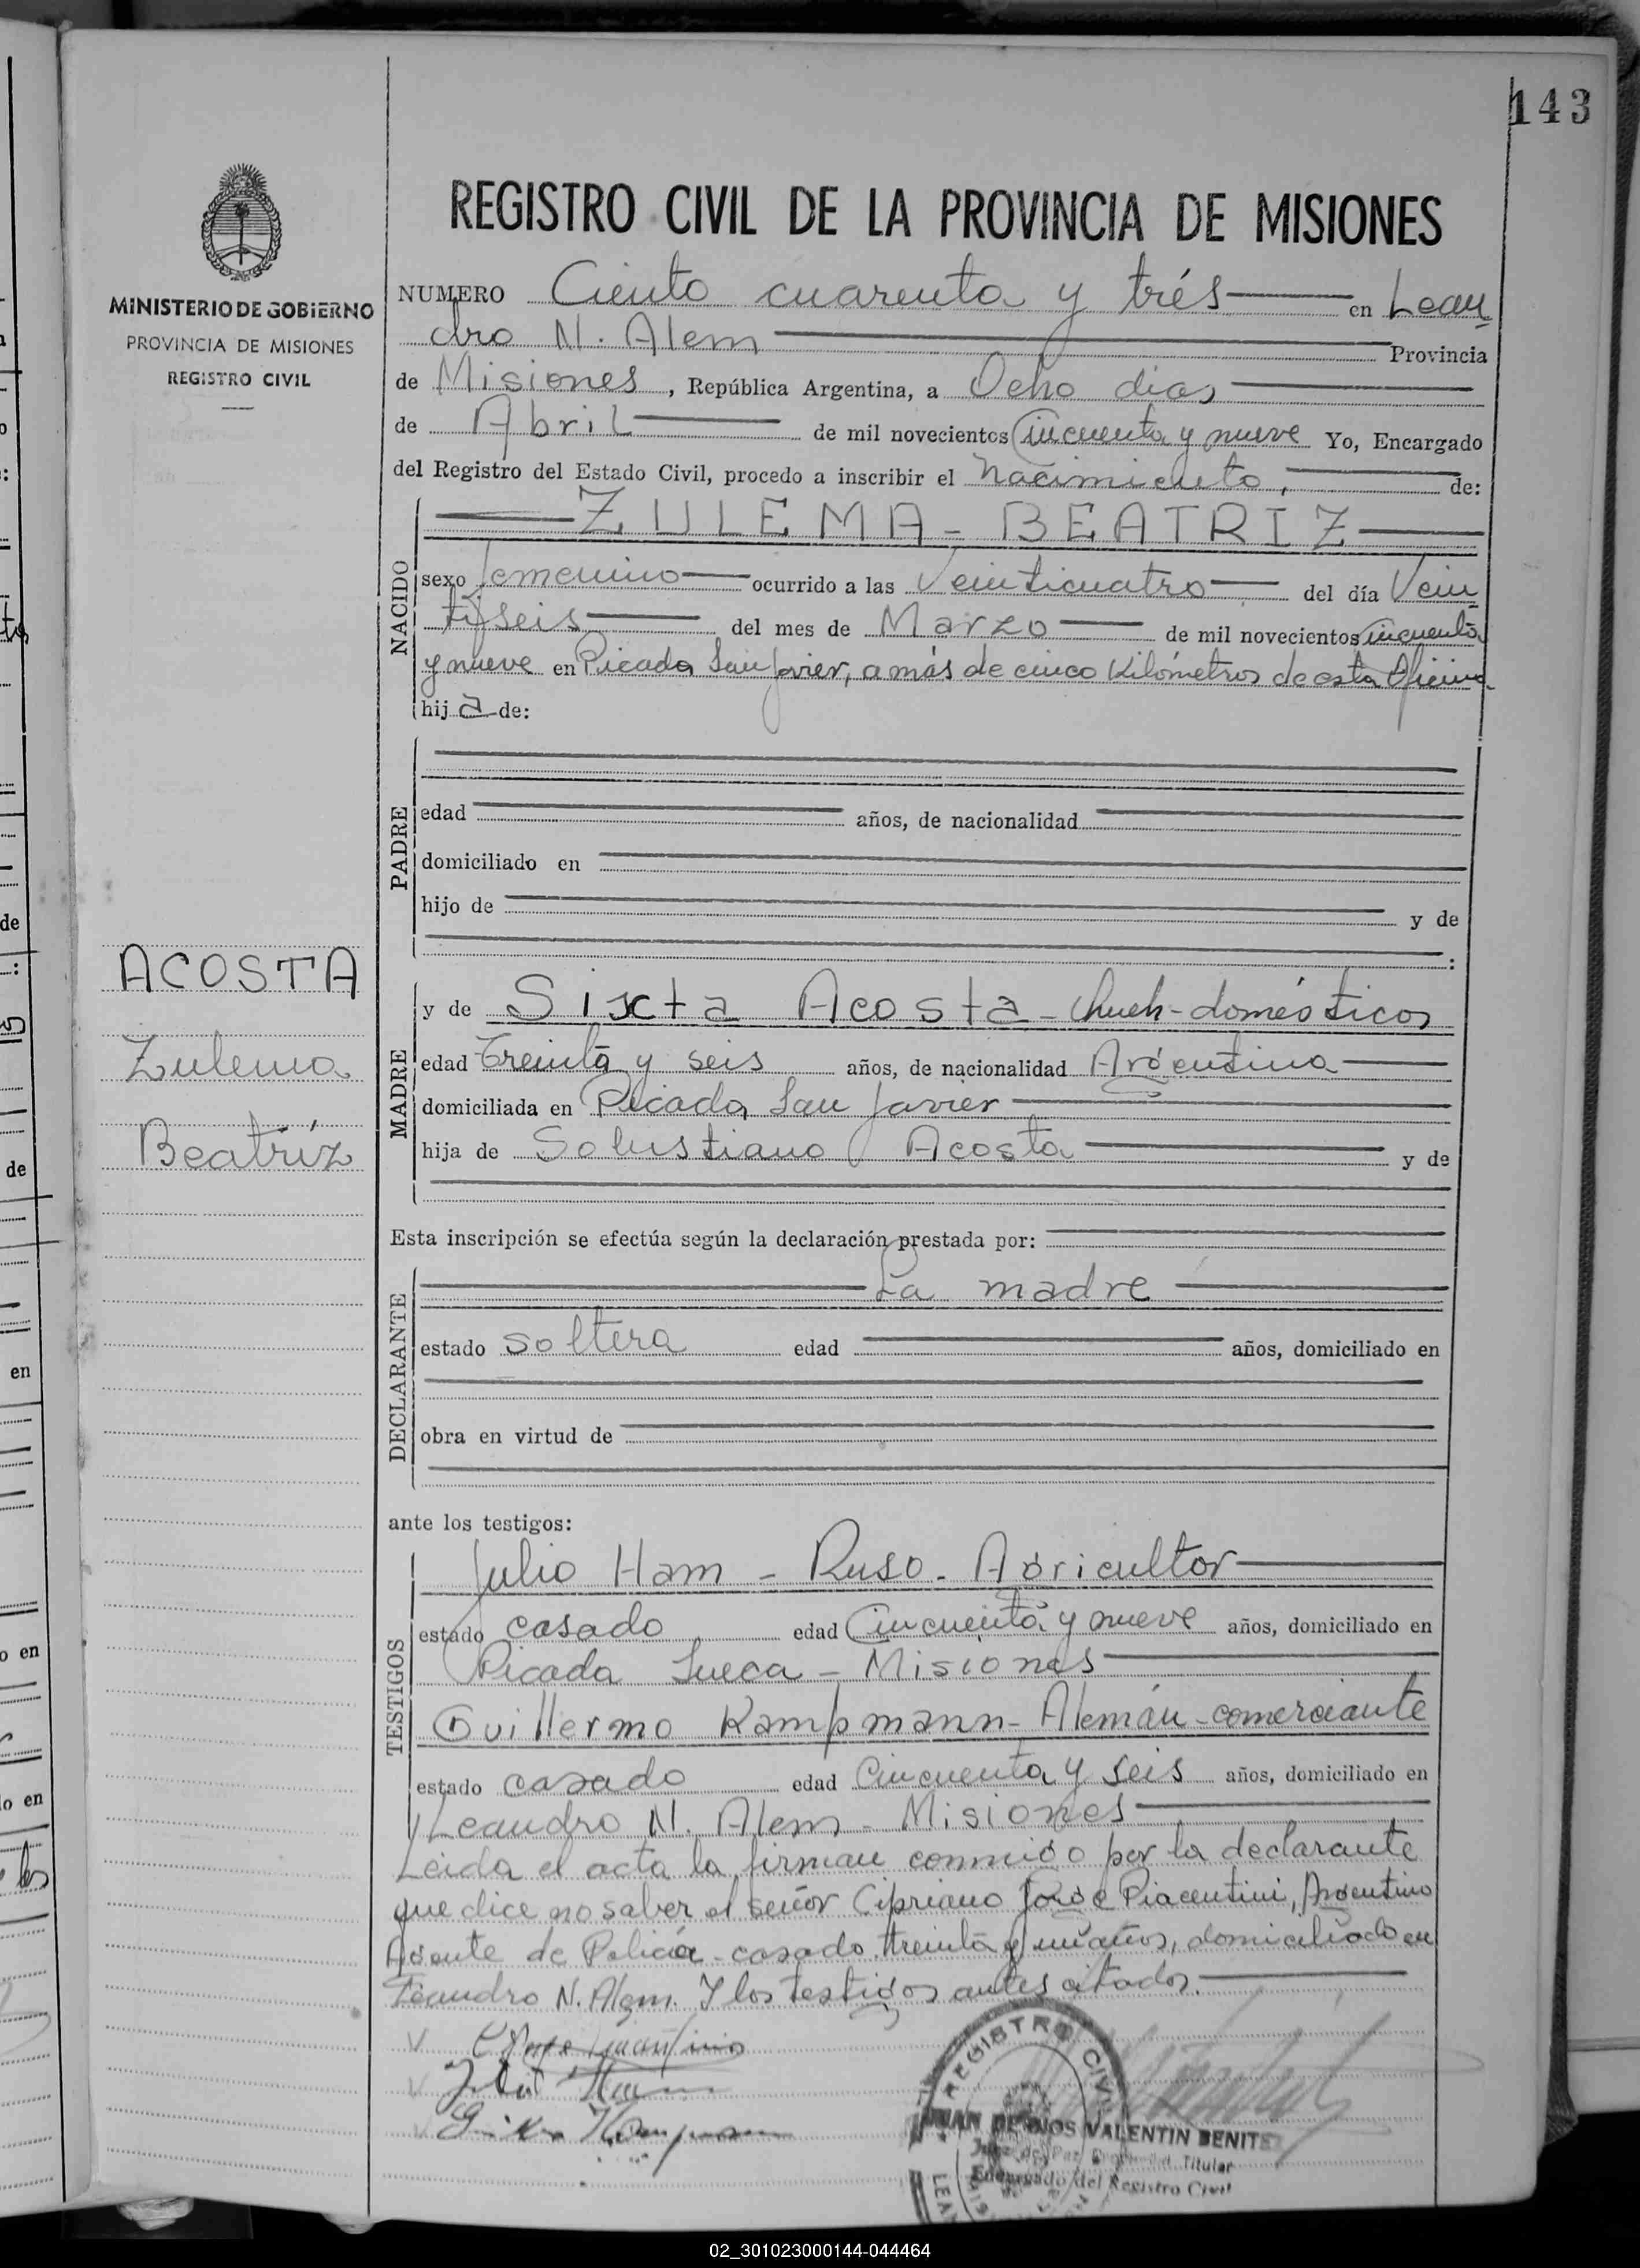 143
REGISTRO CIVIL DE LA PROVINCIA DE MISIONES
MINISTERIO DE GOBIERNO
PROVINCIA DE MISIONES
REGISTRO CIVIL
NUMERO Ciento cuarenta y trés en Lean
dro N. Alem Provincia
de Misiones, República Argentina, a Ocho días
de Abril de mil novecientos Cincuenta y nueve Yo, Encargado
del Registro del Estado Civil, procedo a inscribir el nacimiento, de:
NACIDO
ZULEMA - BEATRIZ
sexo femenino ocurrido a las Veinticuatro del día Vein
tiseis del mes de Marzo de mil novecientos cincuenta
y nueve en Picada San Javier, a más de cinco Kilómetros de esta Oficina.
hija de:
PADRE
edad años, de nacionalidad
domiciliado en
hijo de y de
:
ACOSTA
Zulema
Beatríz
MADRE
y de Sixta Acosta - domésticos
edad Treinta y seis años, de nacionalidad Argentina
domiciliada en Picada San Javier
hija de Solustiano Acosta y de
Esta inscripción se efectúa según la declaración prestada por:
DECLARANTE
La madre
estado soltera edad años, domiciliado en
obra en virtud de
ante los testigos:
TESTIGOS
Julio Ham - Ruso - Agricultor
estado casado edad Cincuenta y nueve años, domiciliado en
Picada Sueca - Misiones
Guillermo Kampmann - Alemán - comerciante
estado casado edad Cincuenta y seis años, domiciliado en
Leandro N. Alem - Misiones
Leida el acta la firman conmigo por la declarante
que dice no saber el señor Cipriano Jorge Piacentini, Argentino
Agente de Policía - casado treinta y un años, domiciliado en
Leandro N. Alem. Y los testigos antes citados.
REGISTRO CIVIL
JUAN DE DIOS VALENTIN BENITEZ
Titular
Encargado del Registro Civil
02_301023000144-044464